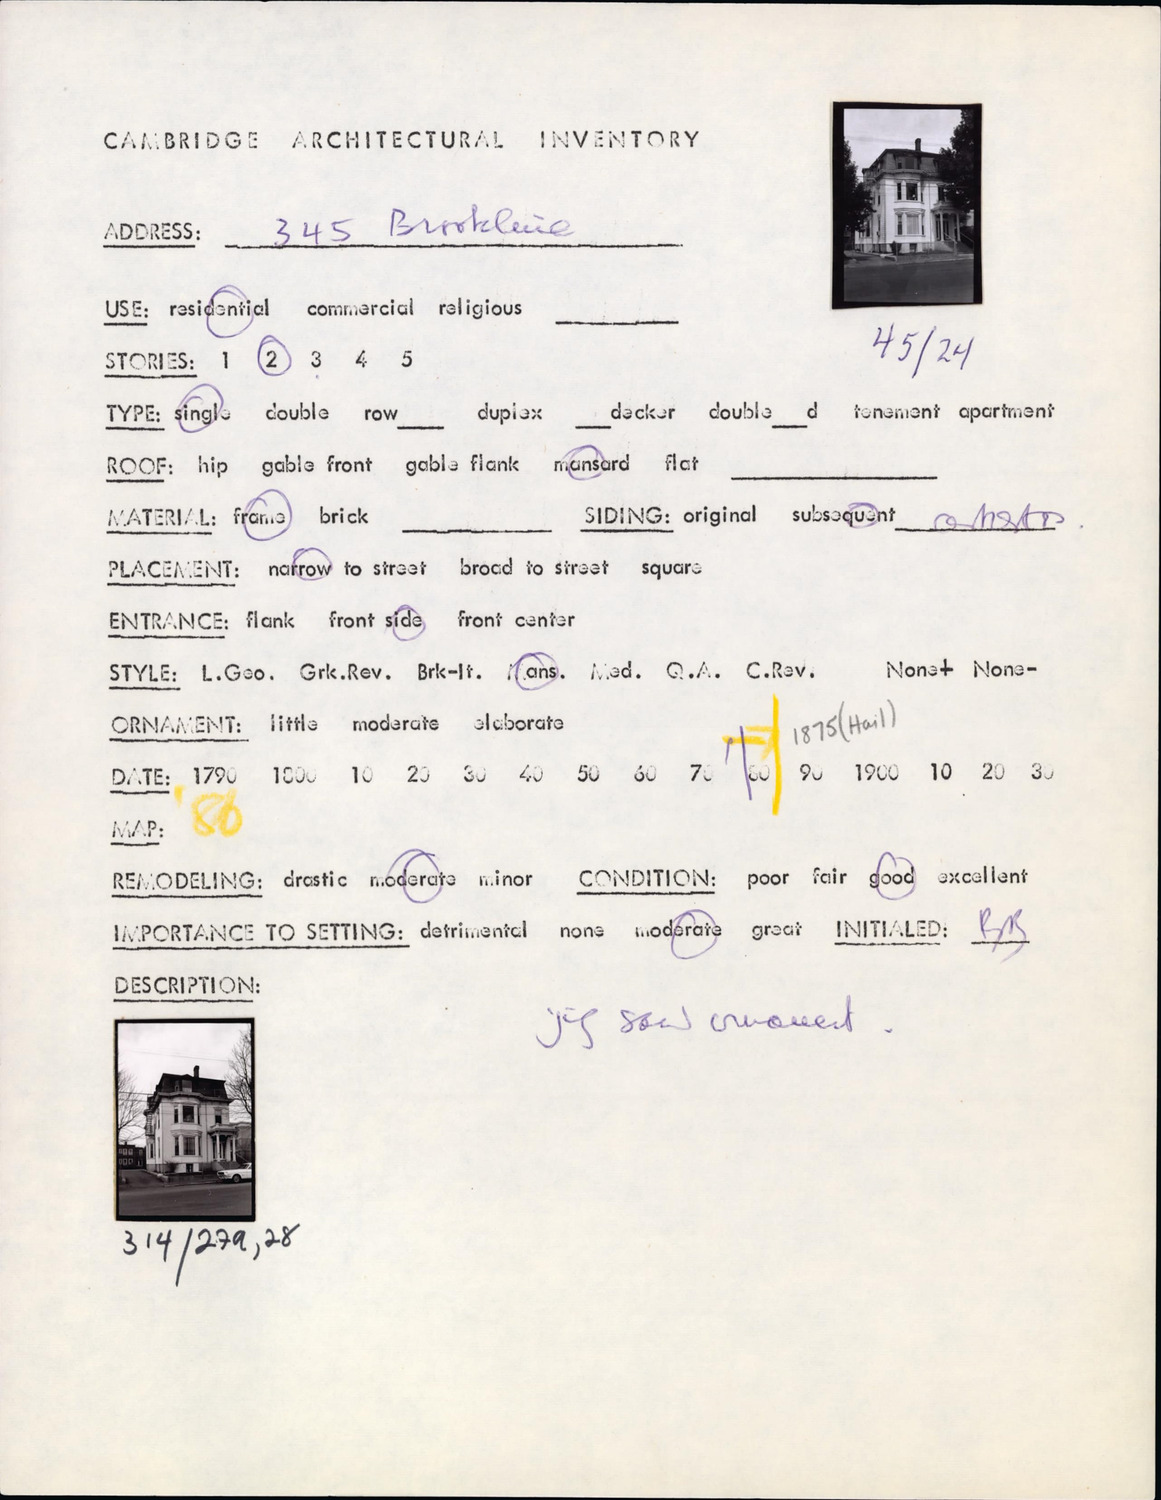 CAMBRIDGE ARCHITECTURAL INVENTORY
ADDRESS: 345 Brookline
45/24
USE: residential commercial religious
STORIES: 1 2 3 4 5
TYPE: single double row___ duplex ___decker double___d tenement apartment
ROOF: hip gable front gable flank mansard flat
MATERIAL: frame brick SIDING: original subsequent asbestos.
PLACEMENT: narrow to street broad to street square
ENTRANCE: flank front side front center
STYLE: L.Geo. Grk.Rev. Brk-It. Mans. Med. Q.A. C.Rev. None+ None-
ORNAMENT: little moderate elaborate
1875(Hail)
DATE: 1790 1800 10 20 30 40 50 60 70 80 90 1900 10 20 30
'86
MAP:
REMODELING: drastic moderate minor CONDITION: poor fair good excellent
IMPORTANCE TO SETTING: detrimental none moderate great INITIALED: BB
DESCRIPTION:
jig saw ornament.
314/27a,28